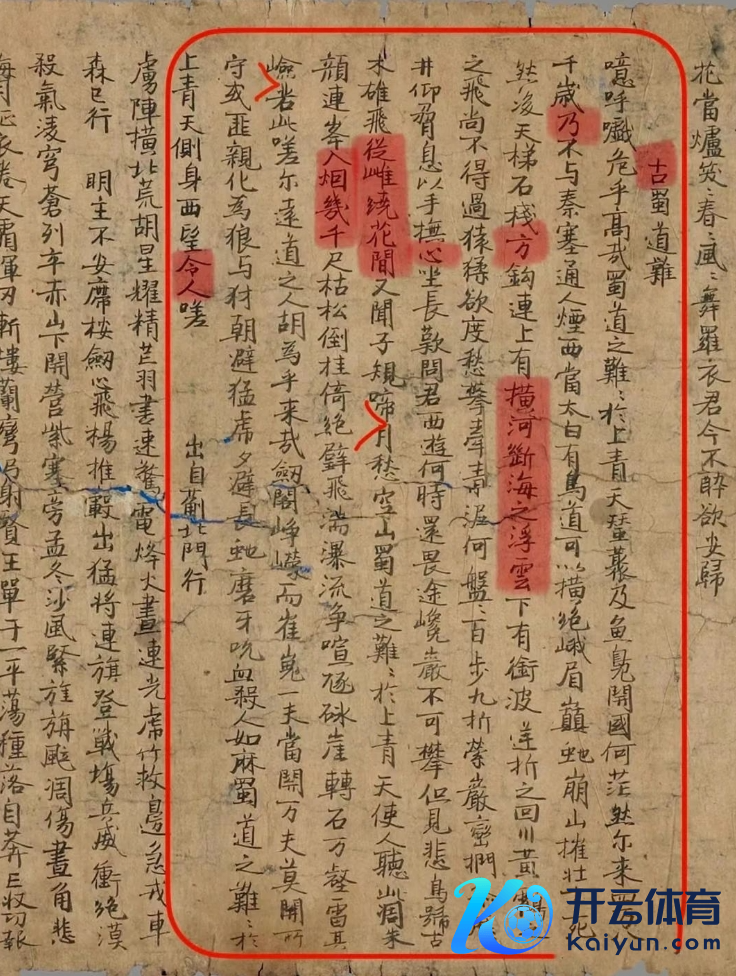 花當爐笑〻春〻風〻舞羅衣君今不醉欲安歸
古蜀道難
噫吁嚱危乎高哉蜀道之難〻於上青天蠶蘩及魚鳧開國何茫然尔來
千歲乃不与秦塞通人煙西當太白有鳥道可以橫絕峨眉巔虵崩山摧壯
然後天梯石棧方鈎連上有橫河斷海之浮雲下有衝波逆折之回川黃
之飛尚不得過猿猱欲度愁攀牽青泥何盤〻百步九折縈巖巒捫
井仰脅息以手撫心坐長歎問君西遊何時還畏途巉巖不可攀但見悲鳥號古
木雄飛從雌繞花間又聞子規啼月愁空山蜀道之難〻於上青天使人聽此凋朱
顏連峯入烟幾千尺枯松倒挂倚絕壁飛湍瀑流爭喧豗砯崖轉石万壑雷其
嶮若此嗟尔遠道之人胡為乎來哉劒閣崢嶸而崔嵬一夫當關万夫莫開所
守或匪親化為狼与豺朝避猛虎夕避長虵磨牙吮血殺人如麻蜀道之難〻於
上青天側身西望令人嗟
出自薊北門行
虜陣橫北荒胡星耀精芒羽書速驚電烽火晝連光虎竹救邊急戎車
森已行 明主不安席桉劒心飛楊推轂出猛將連旗登戰場兵威衝絕漠
殺氣淩穹蒼列卒赤山下開營紫塞旁孟冬沙風緊旌旗颭凋傷晝角悲
海月征衣卷天霜揮刃斬樓蘭彎弓射賢王單于一平蕩種落自奔亡收功報
开云体育
kaiyun.com